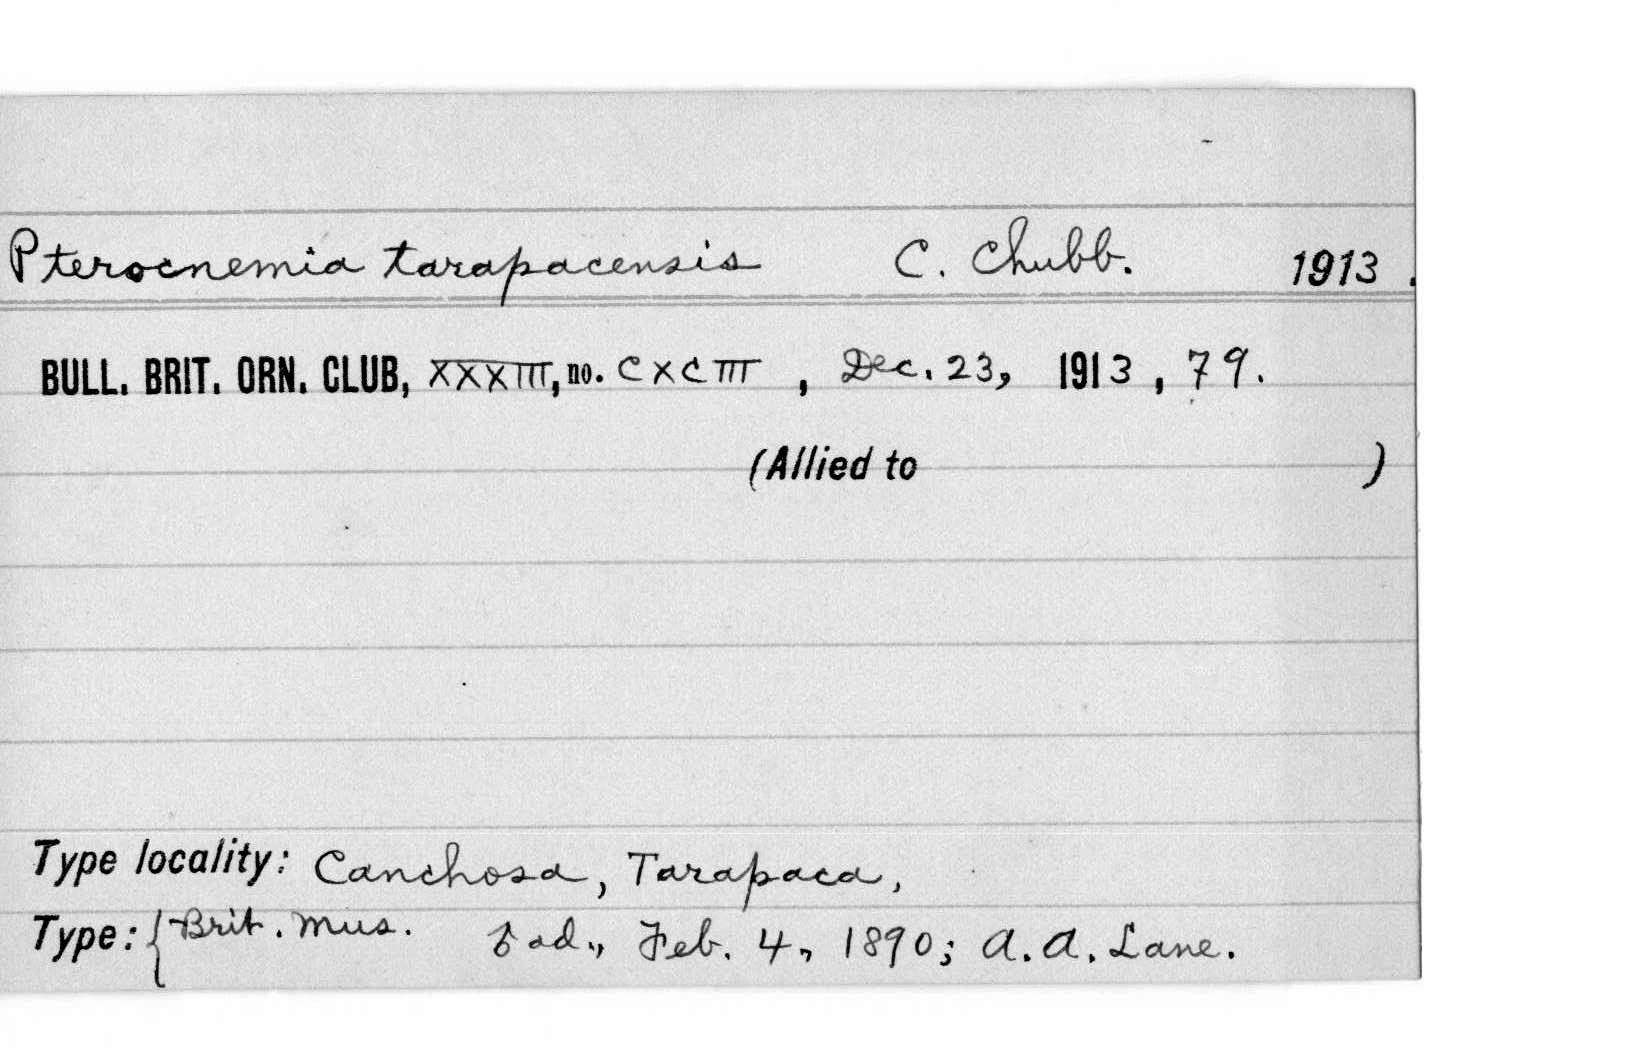 Pterocnemia tarapacensis C. Chubb. 1913.
BULL. BRIT. ORN. CLUB, XXXIII, no. CXCIII, Dec. 23, 1913, 79.
(Allied to )
Type locality: Canchosa, Tarapaca,
Type: { Brit. Mus. ad., Feb. 4, 1890; A. A. Lane.